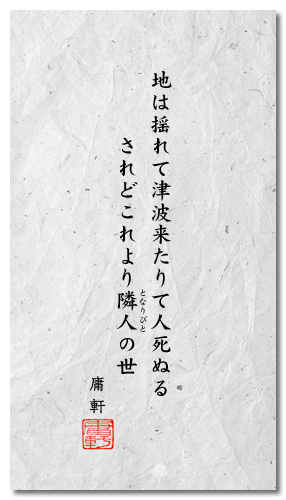 地は揺れて津波来たりて人死ぬる
されどこれより隣人の世
となりびと
庸軒